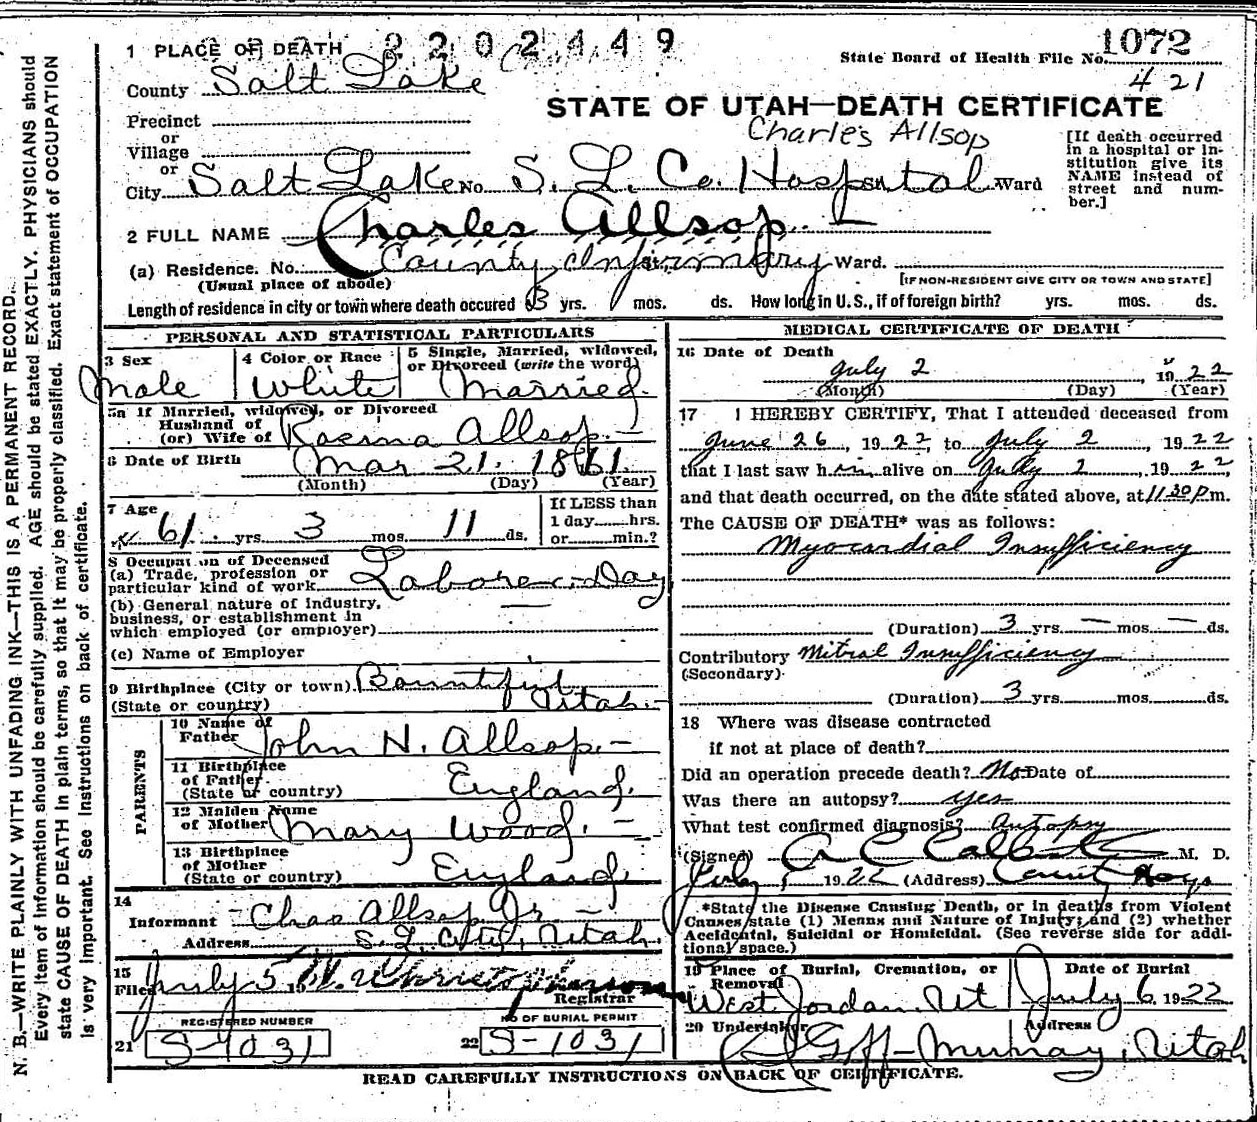 N. B.—WRITE PLAINLY WITH UNFADING INK—THIS IS A PERMANENT RECORD.
Every item of information should be carefully supplied. AGE should be stated EXACTLY. PHYSICIANS should
state CAUSE OF DEATH in plain terms, so that it may be properly classified. Exact statement of OCCUPATION
is very important. See instructions on back of certificate.
2202449
1 PLACE OF DEATH
State Board of Health File No. 1072
421
County Salt Lake
STATE OF UTAH—DEATH CERTIFICATE
Charles Allsop
Precinct
or
Village
or
City Salt Lake No. S. L. Co. Hospital St. Ward
[If death occurred
in a hospital or in-
stitution give its
NAME instead of
street and num-
ber.]
2 FULL NAME Charles Allsop.
(a) Residence. No. County Infirmary St. Ward.
(Usual place of abode)
[IF NON-RESIDENT GIVE CITY OR TOWN AND STATE]
Length of residence in city or town where death occured 3 yrs. mos. ds. How long in U.S., if of foreign birth? yrs. mos. ds.
PERSONAL AND STATISTICAL PARTICULARS
3 Sex
Male
4 Color or Race
White
5 Single, Married, widowed,
or Divorced (write the word)
Married.
5a If Married, widowed, or Divorced
Husband of
(or) Wife of Allsop.
6 Date of Birth Mar 21. 1861.
(Month) (Day) (Year)
7 Age
61 yrs. 3 mos. 11 ds.
If LESS than
1 day hrs.
or min.?
8 Occupation of Deceased
(a) Trade, profession or
particular kind of work Laborer. Day
(b) General nature of industry,
business, or establishment in
which employed (or employer) —
(c) Name of Employer
9 Birthplace (City or town) Bountiful
(State or country) Utah.
PARENTS
10 Name of
Father John N. Allsop.
11 Birthplace
of Father.
(State or country) England.
12 Maiden Name
of Mother Mary Wood.
13 Birthplace
of Mother
(State or country) England.
14
Informant Chas Allsop Jr.
Address S. L. City, Utah.
15
Filed July 5,
Registrar
REGISTERED NUMBER
21 S-1031
NO OF BURIAL PERMIT
22 S-1031
MEDICAL CERTIFICATE OF DEATH
16 Date of Death
July 2, 1922
(Month) (Day) (Year)
17 I HEREBY CERTIFY, That I attended deceased from
June 26, 1922, to July 2, 1922
that I last saw him alive on July 2, 1922
and that death occurred, on the date stated above, at 11.30 P m.
The CAUSE OF DEATH* was as follows:
Myocardial Insufficiency
(Duration) 3 yrs. — mos. — ds.
Contributory Mitral Insufficiency
(Secondary)
(Duration) 3 yrs. mos. ds.
18 Where was disease contracted
if not at place of death?
Did an operation precede death? No Date of
Was there an autopsy? yes
What test confirmed diagnosis? Autopsy
(Signed) A C M. D.
July, 1922 (Address) County Hosp
*State the Disease Causing Death, or in deaths from Violent
Causes, state (1) Menns and Nature of Injury; and (2) whether
Accidental, Suicidal or Homicidal. (See reverse side for addi-
tional space.)
19 Place of Burial, Cremation, or
Removal
West Jordan. Ut
Date of Burial
July 6, 1922
20 Undertaker
Address
Goff - Murray, Utah
READ CAREFULLY INSTRUCTIONS ON BACK OF CERTIFICATE.